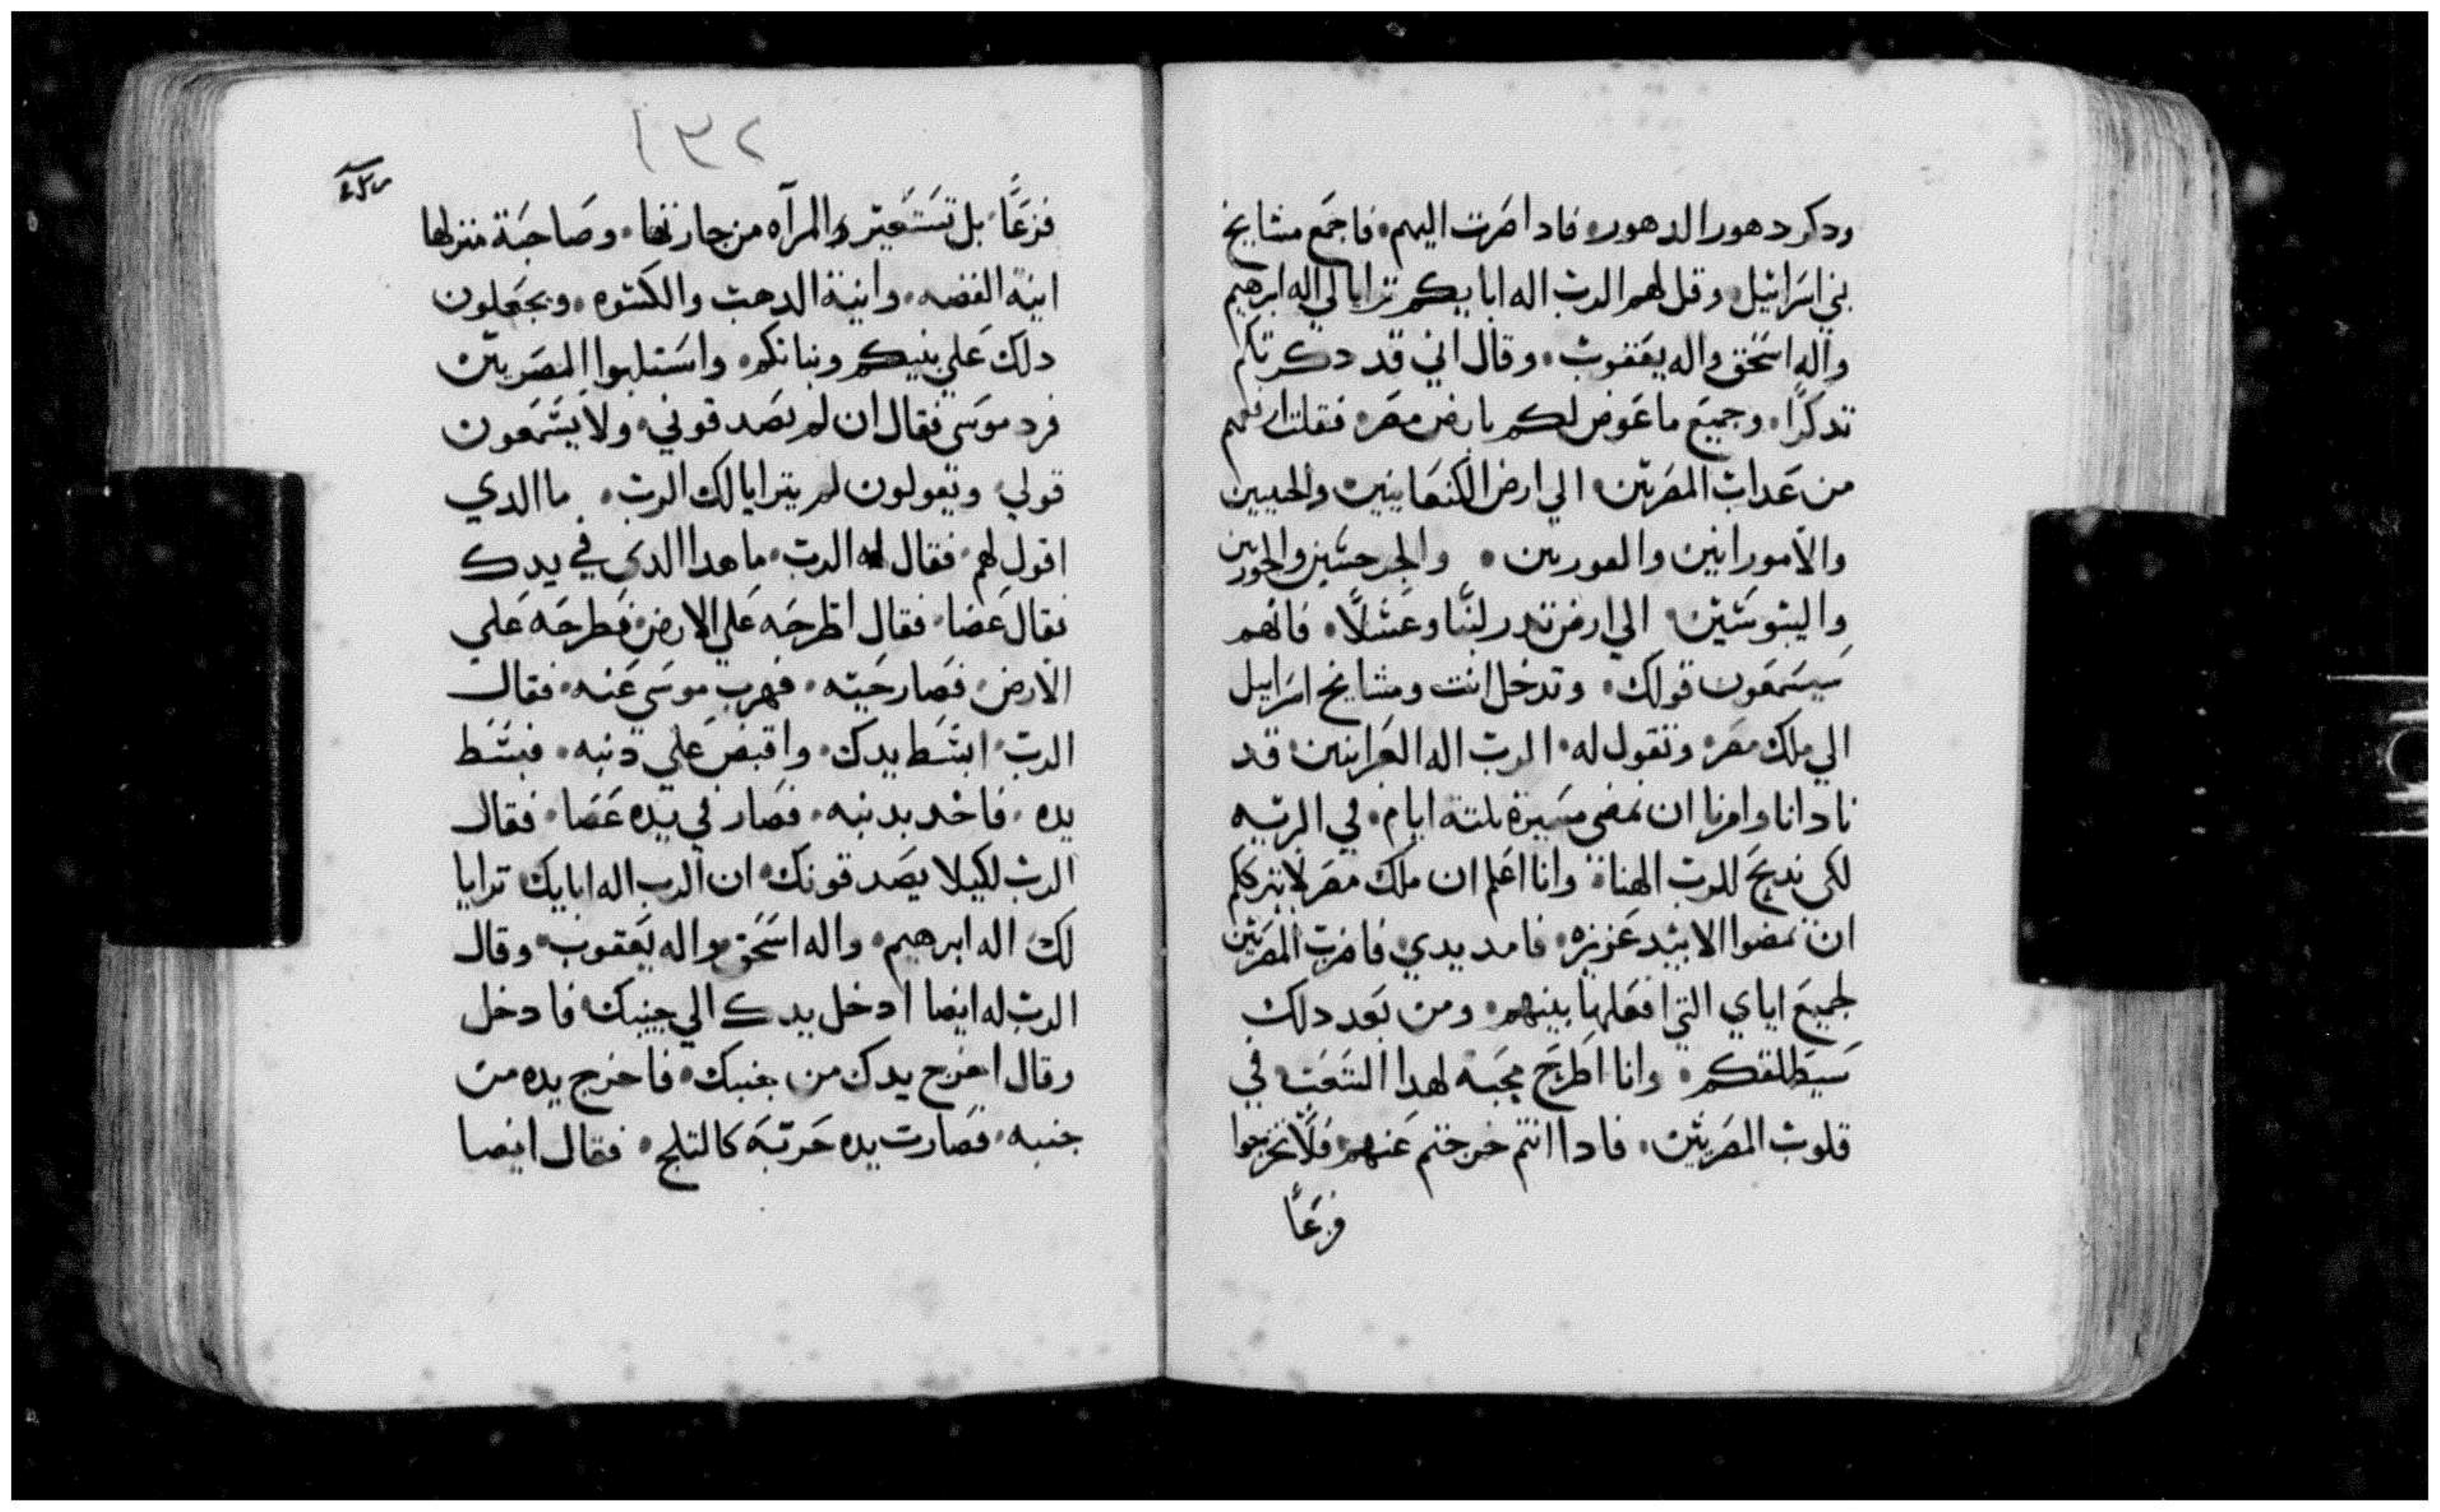 ودكر دهور الدهور فادا صرت اليهم فاجمع مشايخ
بني اسرائيل وقل لهم الرب اله اباىكم ترايا لي اله ابرهيم
واله اسحق واله يعقوب وقال اني قد دكرتكم
تدكرا وجميع ما عوض لكم بارض مصر فقلت ارفعكم
من عداب المصريين الي ارض الكنعانيين والحيين
والامورانيين والفوريين والجرجسيين والحوريين
واليبوسيين الي ارض تدر لبنا وعسلا فانهم
سيسمعون قولك وتدخل انت ومشايخ اسراييل
الي ملك مصر وتقول له الرب اله العبرانيين قد
نادانا وامرنا ان نمضي مسيرة تلتة ايام في البريه
لكي ندبح للرب الهنا وانا اعلم ان ملك مصر لا يترككم
ان تمضوا الا بيد عزيزه فامد يدي فاضرب المصريين
لجميع اياي التي افعلها بينهم ومن بعد دلك
سيطلقكم وانا اطرح محبه لهدا الشعب في
قلوب المصريين فادا انتم خرجتم عنهم فلا تخرجوا
فزعا
١٣٢
فزعا بل تستعير المرآه من جارتها وصاحبة منزلها
انية الفضه وانية الدهب والكسوه ويجعلون
دلك علي بنيكم وبناتكم واستلبوا المصريين
فرد موسى فقال ان لم يصدقوني ولا يسمعون
قولي ويقولون لم يترايا لك الرب ما الدي
اقول لهم فقال له الرب ما هدا الدي في يدك
فقال عصا فقال اطرحه علي الارض فطرحه علي
الارض فصار حيه فهرب موسى عنه فقال
الرب ابسط يدك واقبض علي دنبه فبسط
يده فاخد بدنبه فصار في يده عصا فقال
الرب لكيلا يصدقونك ان الرب اله ابايك ترايا
لك اله ابرهيم واله اسحق واله يعقوب وقال
الرب له ايضا ادخل يدك الي جنبك فادخل
وقال اخرج يدك من جنبك فاخرج يده من
جنبه فصارت يده حربة كالتلج فقال ايضا